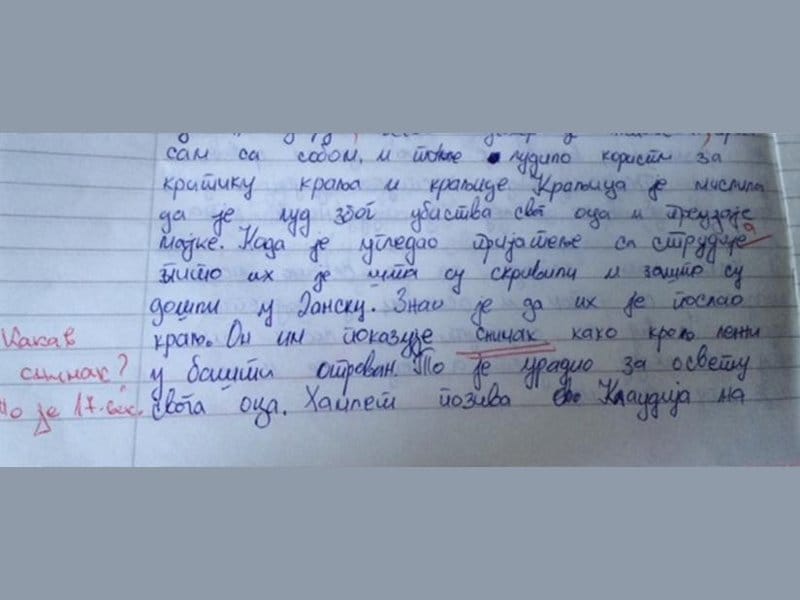 сам са собом, и тове лудило користи за
критику краља и краљице Краљица је мислила
да је луд због убиства свог оца и преудаје
мајке. Када је угледао пријатеље са студије
а
питао их је шта су скривили и зашто су
дошли у Данску. Знао је да их је послао
краљ. Он им показује снимак како краљ лежи
Какав
снимак?
у башти отрован. То је урадио за освету
То је 17. век.
свога оца. Хамлет позива Клаудија на